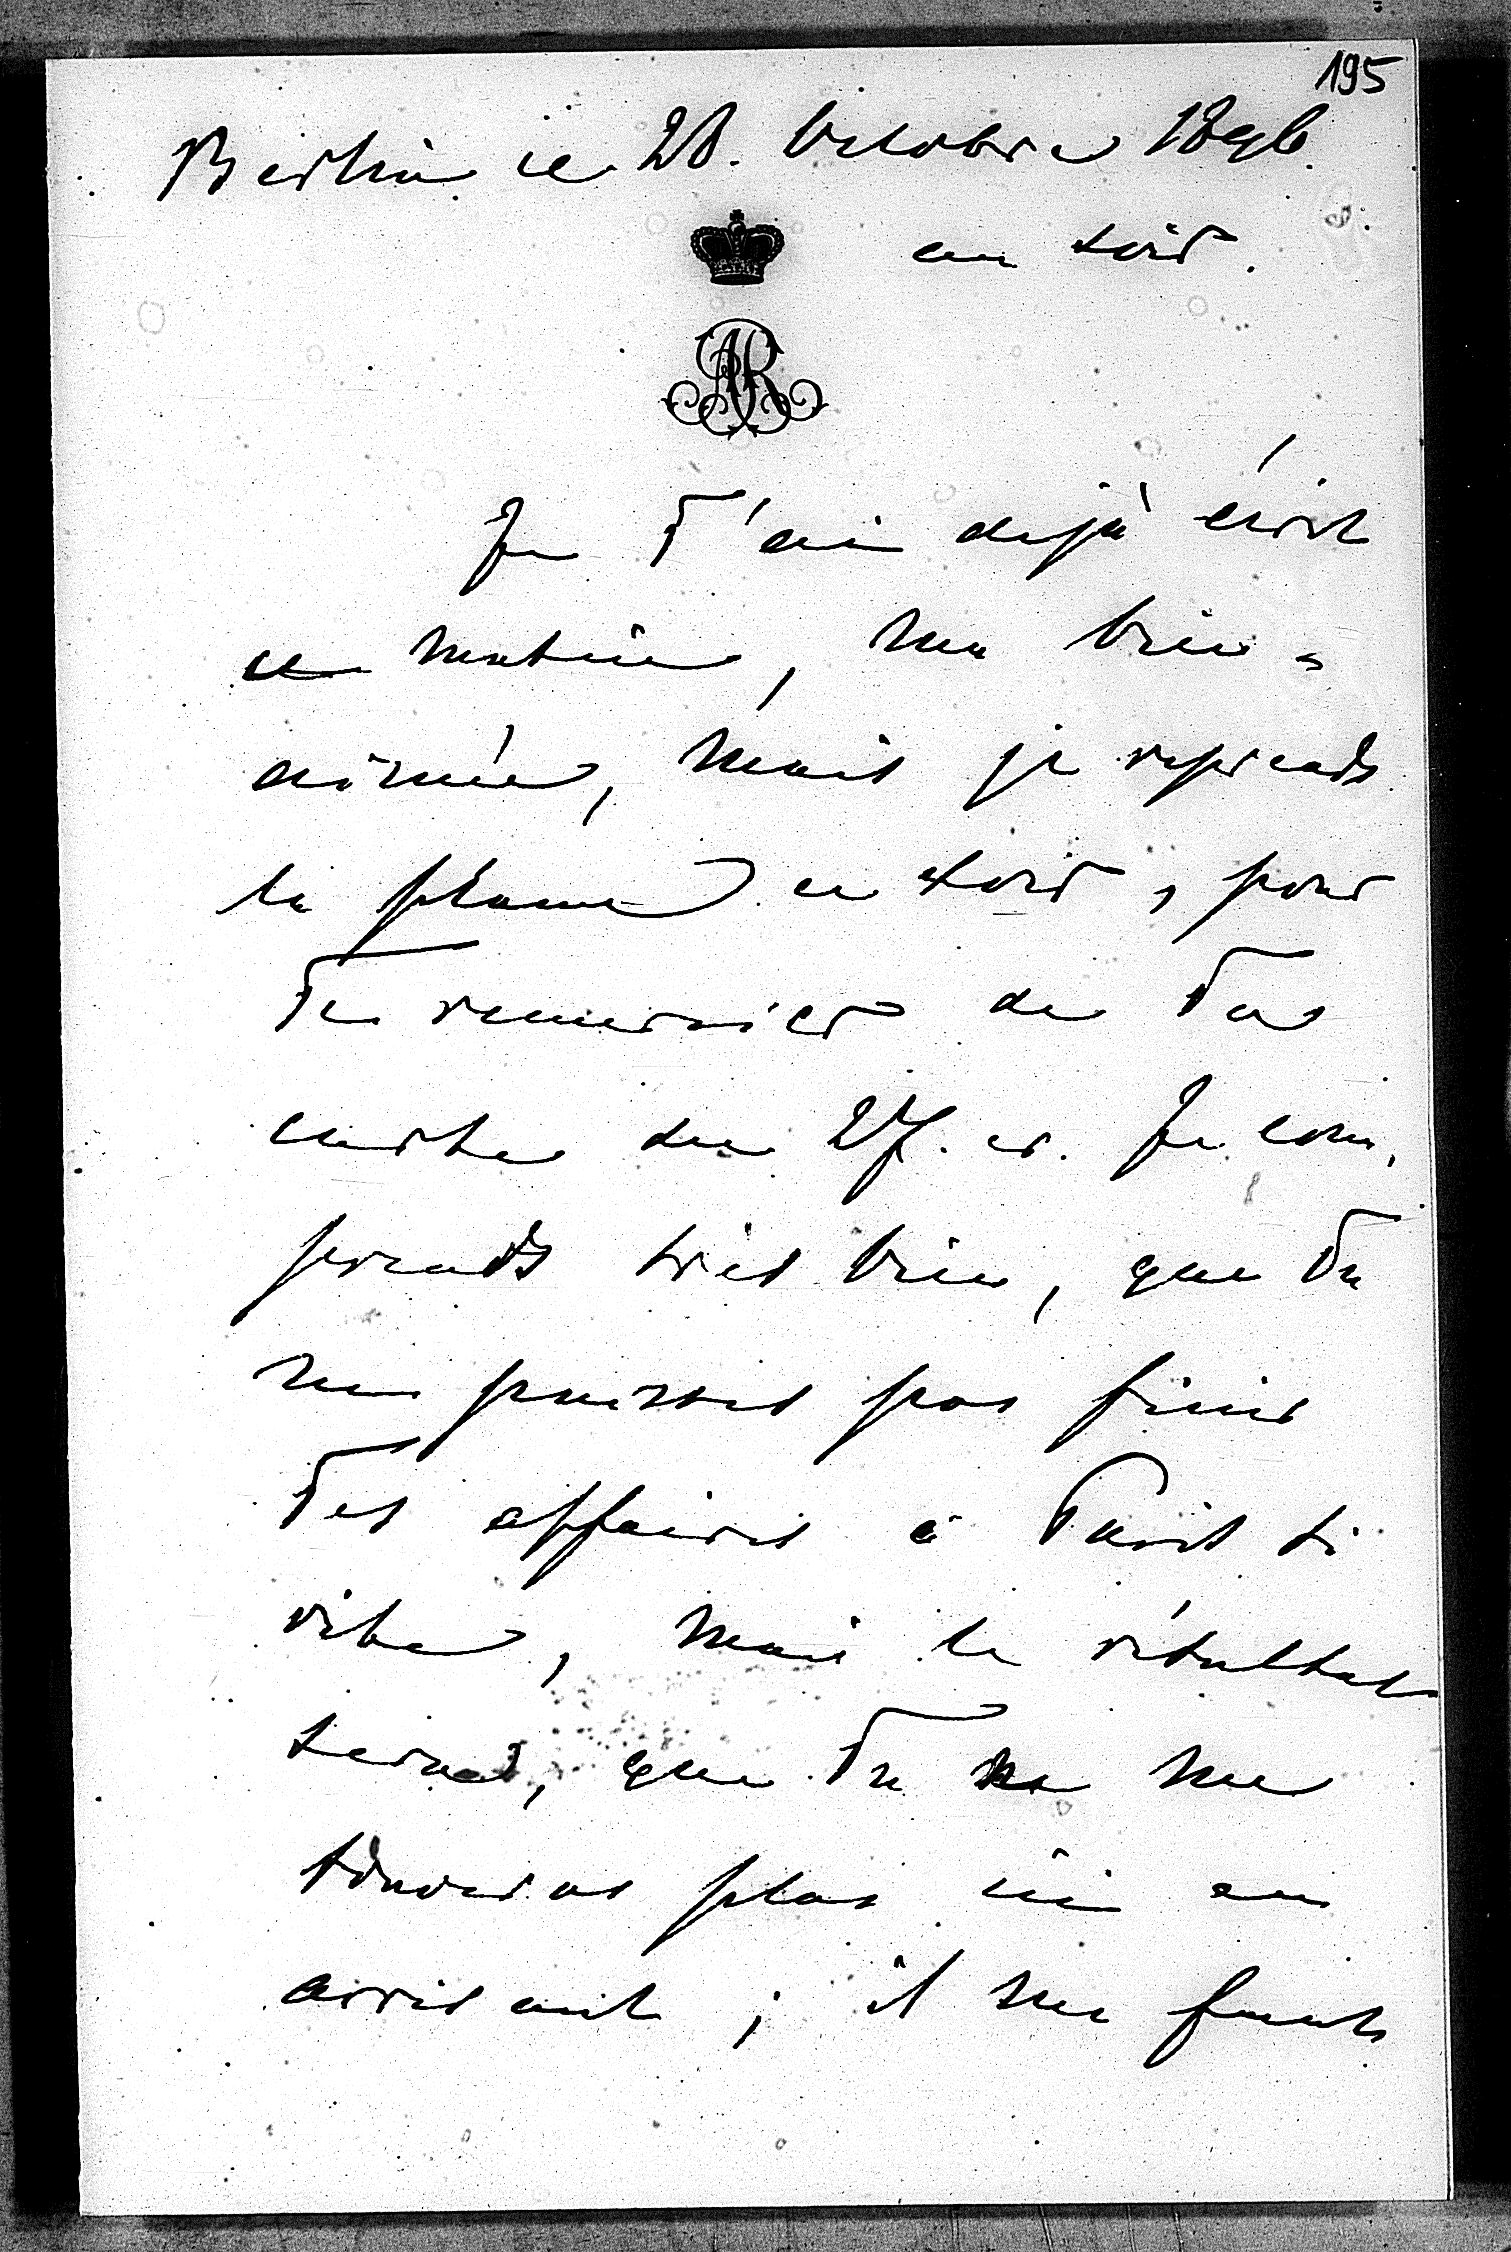 195
Berlin ce 28. Octobre 1896.
au soir.
AR
Je T'ai dejà écrit
ce matin, ma bien-
aimée, mais je reprends
la plume ce soir, pour
Te remercier de Ta
carte du 27. cr. Je com,
prends très bien, que Tu
ne puisses pas finir
Tes affaires à Paris si
vite, mais le résultat
sera, que Tu ne me
trouveras plus ici en
arrivant ; il me faut